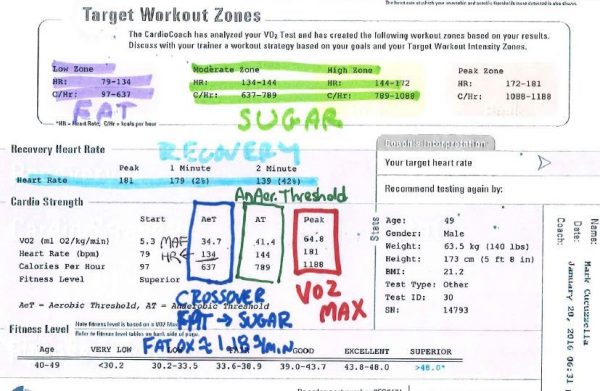 Target Workout Zones
The CardioCoach has analyzed your VO₂ Test and has created the following workout zones based on your results.
Discuss with your trainer a workout strategy based on your goals and your Target Workout Intensity Zones.
Low Zone Moderate Zone High Zone Peak Zone
HR: 79-134 HR: 134-144 HR: 144-172 HR: 172-181
C/Hr: 97-637 C/Hr: 637-789 C/Hr: 789-1088 C/Hr: 1088-1188
FAT SUGAR
*HR = Heart Rate, C/Hr = kcals per hour
Recovery Heart Rate RECOVERY
Peak 1 Minute 2 Minute
Heart Rate 181 179 (2%) 139 (42%)
Coach's Interpretation
Your target heart rate
Recommend testing again by:
AnAer. Threshold
Cardio Strength
Start AeT AT Peak
VO2 (ml O2/kg/min) 5.3 MAF 34.7 41.4 64.8
Heart Rate (bpm) 79 HR 134 144 181
Calories Per Hour 97 637 789 1188
Fitness Level Superior
AeT = Aerobic Threshold, AT = Anaerobic Threshold
CROSSOVER
FAT → SUGAR
FAT OX ≈ 1.18 g/min
VO2
MAX
Stats
Age: 49
Gender: Male
Weight: 63.5 kg (140 lbs)
Height: 173 cm (5 ft 8 in)
BMI: 21.2
Test Type: Other
Test ID: 30
SN: 14793
Name: Mark Cucuzzella
Date: January 20, 2016 06:31
Coach:
Fitness Level
Note fitness level is based on a VO2 Max
Refer to fitness level tables on back side of page
Age VERY LOW LOW FAIR GOOD EXCELLENT SUPERIOR
40-49 <30.2 30.2-33.5 33.6-38.9 39.0-43.7 43.8-48.0 >48.0*